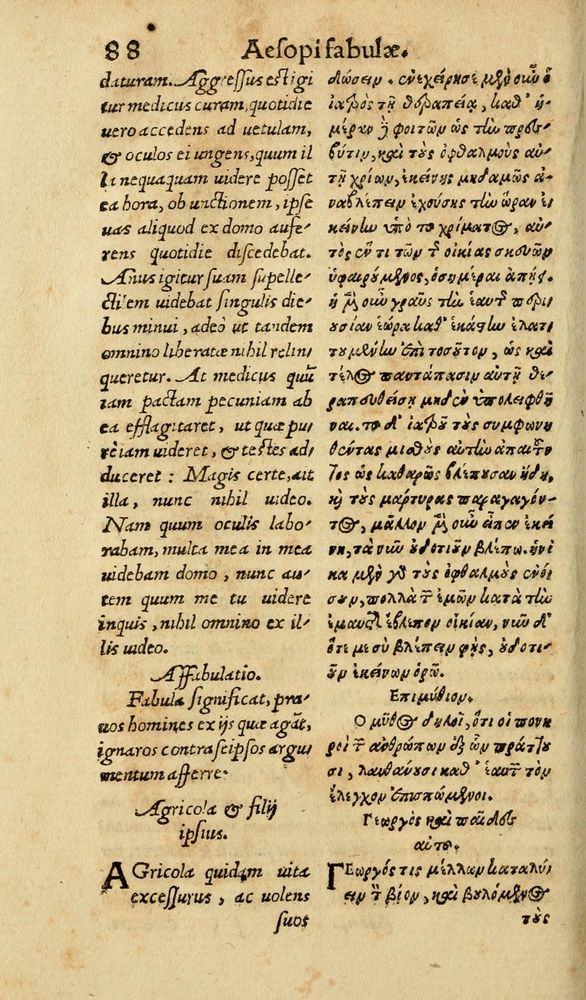 88 Aesopi fabulæ.
daturam. Aggressus est igi
tur medicus curam, quotidie
uero accedens ad uetulam,
& oculos ei ungens, quum il
la nequaquam uidere posset
ea hora, ob unctionem, ipse
uas aliquod ex domo aufe-
rens quotidie discedebat.
Anus igitur suam supelle-
ctilem uidebat singulis die-
bus minui, adeò ut tandem
omnino liberatæ nihil relin
queretur. At medicus quũ
iam pactam pecuniam ab
ea efflagitaret, ut quæ pu-
rè iam uideret, & testes ad
duceret: Magis certe, ait
illa, nunc nihil uideo.
Nam quum oculis labo-
rabam, multa mea in mea
uidebam domo, nunc au-
tem quum me tu uidere
inquis, nihil omnino ex il-
lis uideo.
Affabulatio.
Fabula significat, pra-
uos homines ex ijs quæ agãt,
ignaros contra seipsos argu
mentum afferre.
Agricola & filij
ipsius.
AGricola quidam uita
excessurus, ac uolens
suos
δώσειν. ἐνεχείρησε μὲν οὖν ὁ
ἰατρὸς τῇ θεραπείᾳ, καθ' ἡ-
μέραν ἢ φοιτῶν ὡς τὴν πρεσ-
βύτιν, καὶ τοὺς ὀφθαλμοὺς αὐ-
τῇ χρίων, ἐκείνης μηδαμῶς ἀ-
ναβλέπειν ἐχούσης τὴν ὥραν ἐ-
κείνην ὑπὸ τοῦ χρίματος, αὐ-
τὸς ἕν τι τῶν τῆς οἰκίας σκευῶν
ὑφαιρούμενος, ὁσημέραι ἀπῄει.
ἡ μὲν οὖν γραῦς τὴν ἑαυτῆς περι-
ουσίαν ἑώρα καθ' ἑκάστην ἐλατ-
τουμένην ἐπὶ τοσοῦτον, ὡς καὶ
τέλος παντάπασιν αὐτῇ θε-
ραπευθείσῃ μηδὲν ὑπολειφθῆ-
ναι. τοῦ δ' ἰατροῦ τοὺς συμφωνη-
θέντας μισθοὺς αὐτὴν ἀπαιτοῦν-
τος ὡς καθαρῶς βλέπουσαν ἤδη,
καὶ τοὺς μάρτυρας παραγαγόν-
τος, μᾶλλον μὲν οὖν εἶπεν ἐκεί-
νη, τὰ νῦν οὐδοτιοῦν βλέπω. ἡνί-
κα μὲν γὰρ τοὺς ὀφθαλμοὺς ἐνό-
σουν, πολλὰ τῶν ἐμῶν κατὰ τὴν
ἐμαυτῆς ἔβλεπον οἰκίαν, νῦν δ'
ὅτι με σὺ βλέπειν φῂς, οὐδοτι-
οῦν ἐκείνων ὁρῶ.
Ἐπιμύθιον.
Ὁ μῦθος δηλοῖ, ὅτι οἱ πονη-
ροὶ τῶν ἀνθρώπων ἐξ ὧν πράττου-
σι, λανθάνουσι καθ' ἑαυτῶν τὸν
ἔλεγχον ἐπισπώμενοι.
Γεωργὸς καὶ παῖδες
αὐτοῦ.
ΓΕωργός τις μέλλων καταλύ-
ειν τὸν βίον, καὶ βουλόμενος
τοὺς